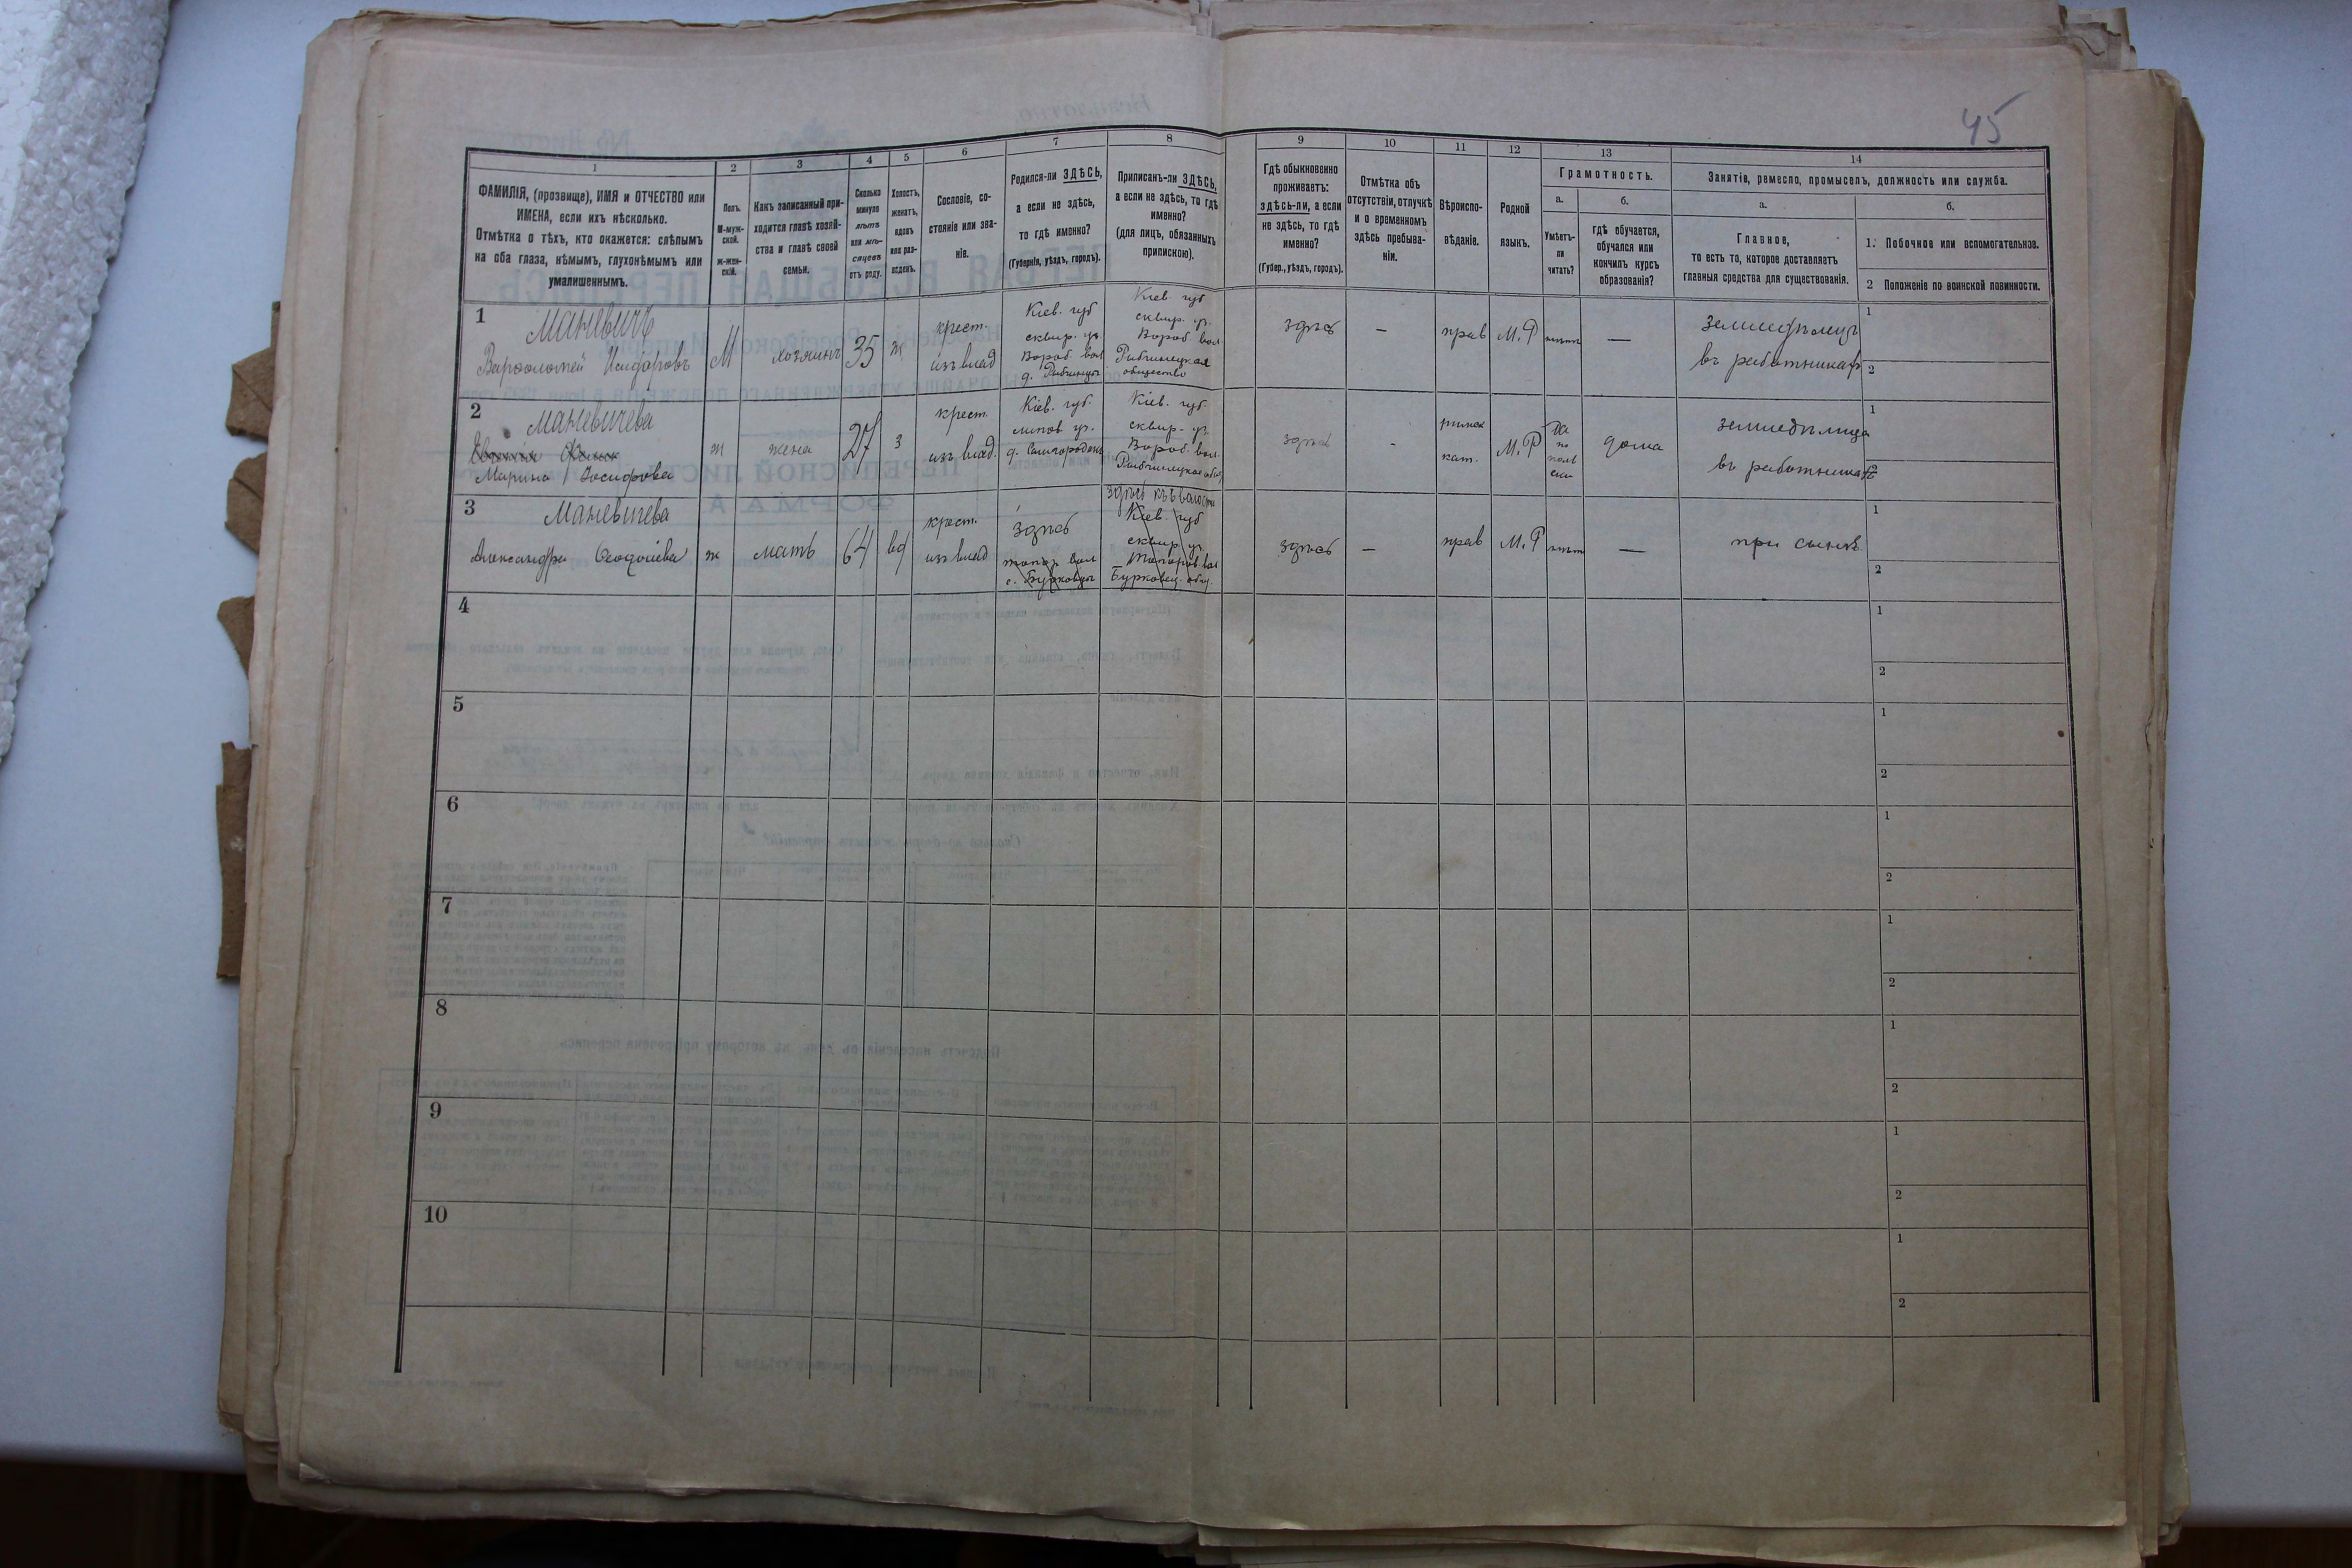 45
1 2 3 4 5 6 7 8 9 10 11 12 13 14
ФАМИЛІЯ, (прозвище), ИМЯ и ОТЧЕСТВО или
ИМЕНА, если ихъ нѣсколько.
Отмѣтка о тѣхъ, кто окажется: слѣпымъ
на оба глаза, нѣмымъ, глухонѣмымъ или
умалишеннымъ.
Полъ.
М-муж-
ской.
ж-жен-
скій.
Какъ записанный при-
ходится главѣ хозяй-
ства и главѣ своей
семьи.
Сколько
минуло
лѣтъ
или мѣ-
сяцевъ
отъ роду.
Холостъ,
женатъ,
вдовъ
или раз-
веденъ.
Сословіе, со-
стояніе или зва-
ніе.
Родился-ли ЗДѢСЬ,
а если не здѣсь,
то гдѣ именно?
(Губернія, уѣздъ, городъ).
Приписанъ-ли ЗДѢСЬ,
а если не здѣсь, то гдѣ
именно?
(для лицъ, обязанныхъ
припискою).
Гдѣ обыкновенно
проживаетъ:
здѣсь-ли, а если
не здѣсь, то гдѣ
именно?
(Губер., уѣздъ, городъ).
Отмѣтка объ
отсутствіи, отлучкѣ
и о временномъ
здѣсь пребыва-
ніи.
Вѣроиспо-
вѣданіе.
Родной
языкъ.
Грамотность.
а.
Умѣетъ-
ли
читать?
б.
гдѣ обучается,
обучался или
кончилъ курсъ
образованія?
Занятіе, ремесло, промыселъ, должность или служба.
а.
Главное,
то есть то, которое доставляетъ
главныя средства для существованія.
б.
1. Побочное или вспомогательное.
2 Положеніе по воинской повинности.
1
Маневичъ
Варфоломей Исидоровъ
М
хозяинъ
35
ж
крест.
изъ влад
Кіев. губ
сквир. уѣ.
Вороб. вол
д. Рибчинцы
Кіев. губ
сквир. уѣ.
Вороб. вол
Рибчинецкая
общество
здѣсь
—
прав
М. Р
нѣтъ
—
земледѣлецъ
въ работникахъ
1
2
2
Маневичева
Марина Іосифова
ж
жена
27
з
крест.
изъ влад.
Кіев. губ.
липов уѣ.
Кіев. губ.
сквир. уѣ
Вороб. вол
Рибчинецкое общ
здѣсь
-
римск
кат.
М. Р
да
по
поль
ски
дома
земледѣлица
въ работникахъ
1
2
3
Маневичева
Александра Феодосіева
ж
мать
64
вд
крест.
изъ влад
здѣсь
с. Бурковцы
здѣсь къ волости
Кіев. губ
сквир уѣ
Топоров вол
Бурковец. общ.
здѣсь
—
прав
М. Р
нѣтъ
—
при сынѣ
1
2
4
1
2
5
1
2
6
1
2
7
1
2
8
1
2
9
1
2
10
1
2